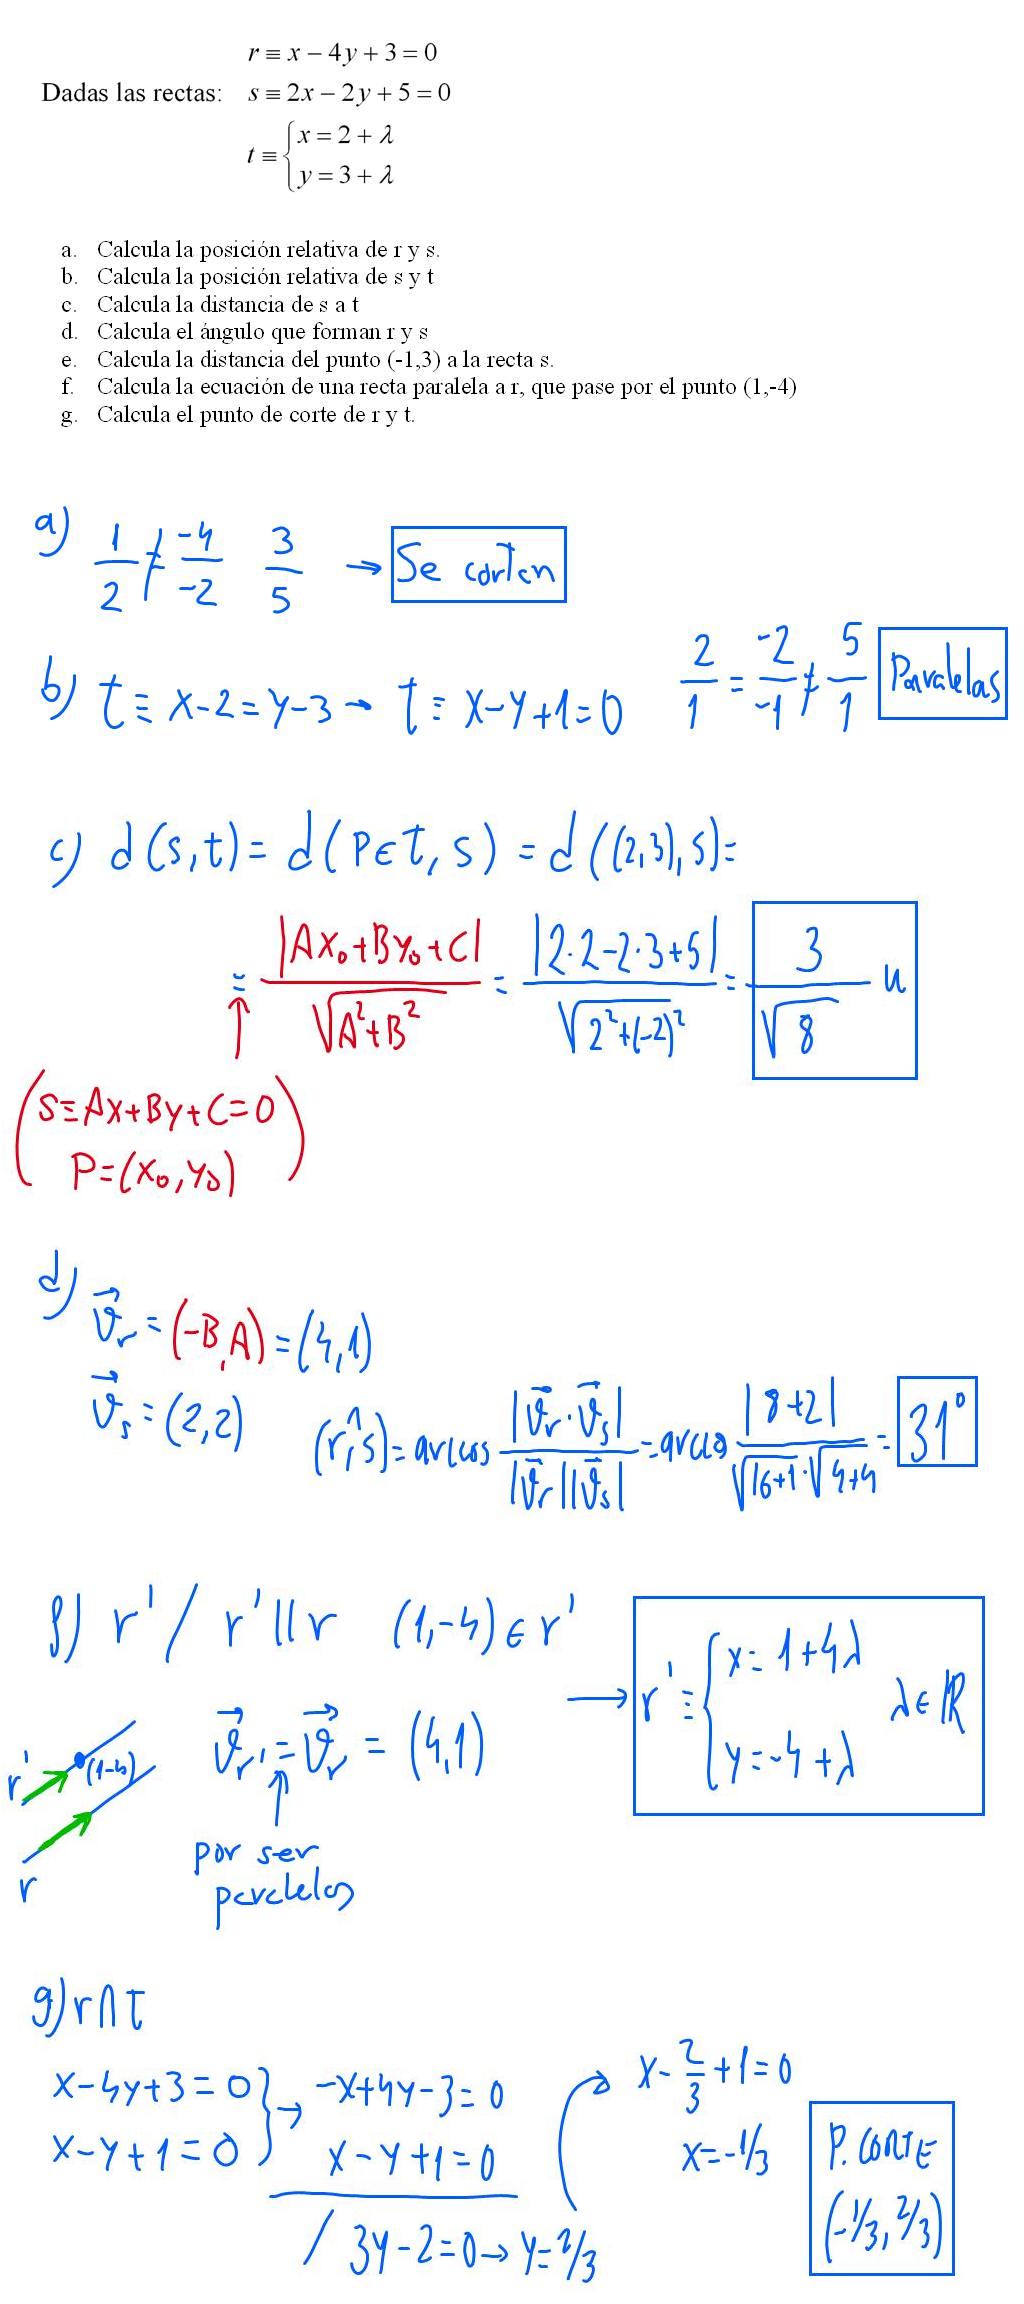 r ≡ x − 4y + 3 = 0
Dadas las rectas: s ≡ 2x − 2y + 5 = 0
t ≡ { x = 2 + λ
y = 3 + λ
a. Calcula la posición relativa de r y s.
b. Calcula la posición relativa de s y t
c. Calcula la distancia de s a t
d. Calcula el ángulo que forman r y s
e. Calcula la distancia del punto (-1,3) a la recta s.
f. Calcula la ecuación de una recta paralela a r, que pase por el punto (1,-4)
g. Calcula el punto de corte de r y t.
a) 1/2 ≠ -4/-2 3/5 → Se cortan
b) t ≡ x-2 = y-3 → t ≡ x-y+1=0 2/1 = -2/-1 ≠ 5/1 Paralelas
c) d(s,t) = d(P∈t, s) = d((2,3), s) =
= |Ax₀+By₀+C| / √(A²+B²) = |2·2-2·3+5| / √(2²+(-2)²) = 3/√8 u
(s ≡ Ax+By+C=0
P=(x₀,y₀))
d) v⃗r = (-B,A) = (4,1)
v⃗s = (2,2)
(r,^s) = arccos |v⃗r·v⃗s| / |v⃗r||v⃗s| = arccos |8+2| / √16+1·√4+4 = 31°
f) r' / r' || r (1,-4) ∈ r'
v⃗r' = v⃗r = (4,1) → r' ≡ { x = 1+4λ
y = -4+λ λ∈ℝ
r' (1-4)
r
por ser
paralelas
g) r∩t
x-4y+3=0 } → -x+4y-3=0
x-y+1=0 x-y+1=0
/ 3y-2=0 → y=2/3
x-2/3+1=0
x=-1/3
P. CORTE
(-1/3, 2/3)